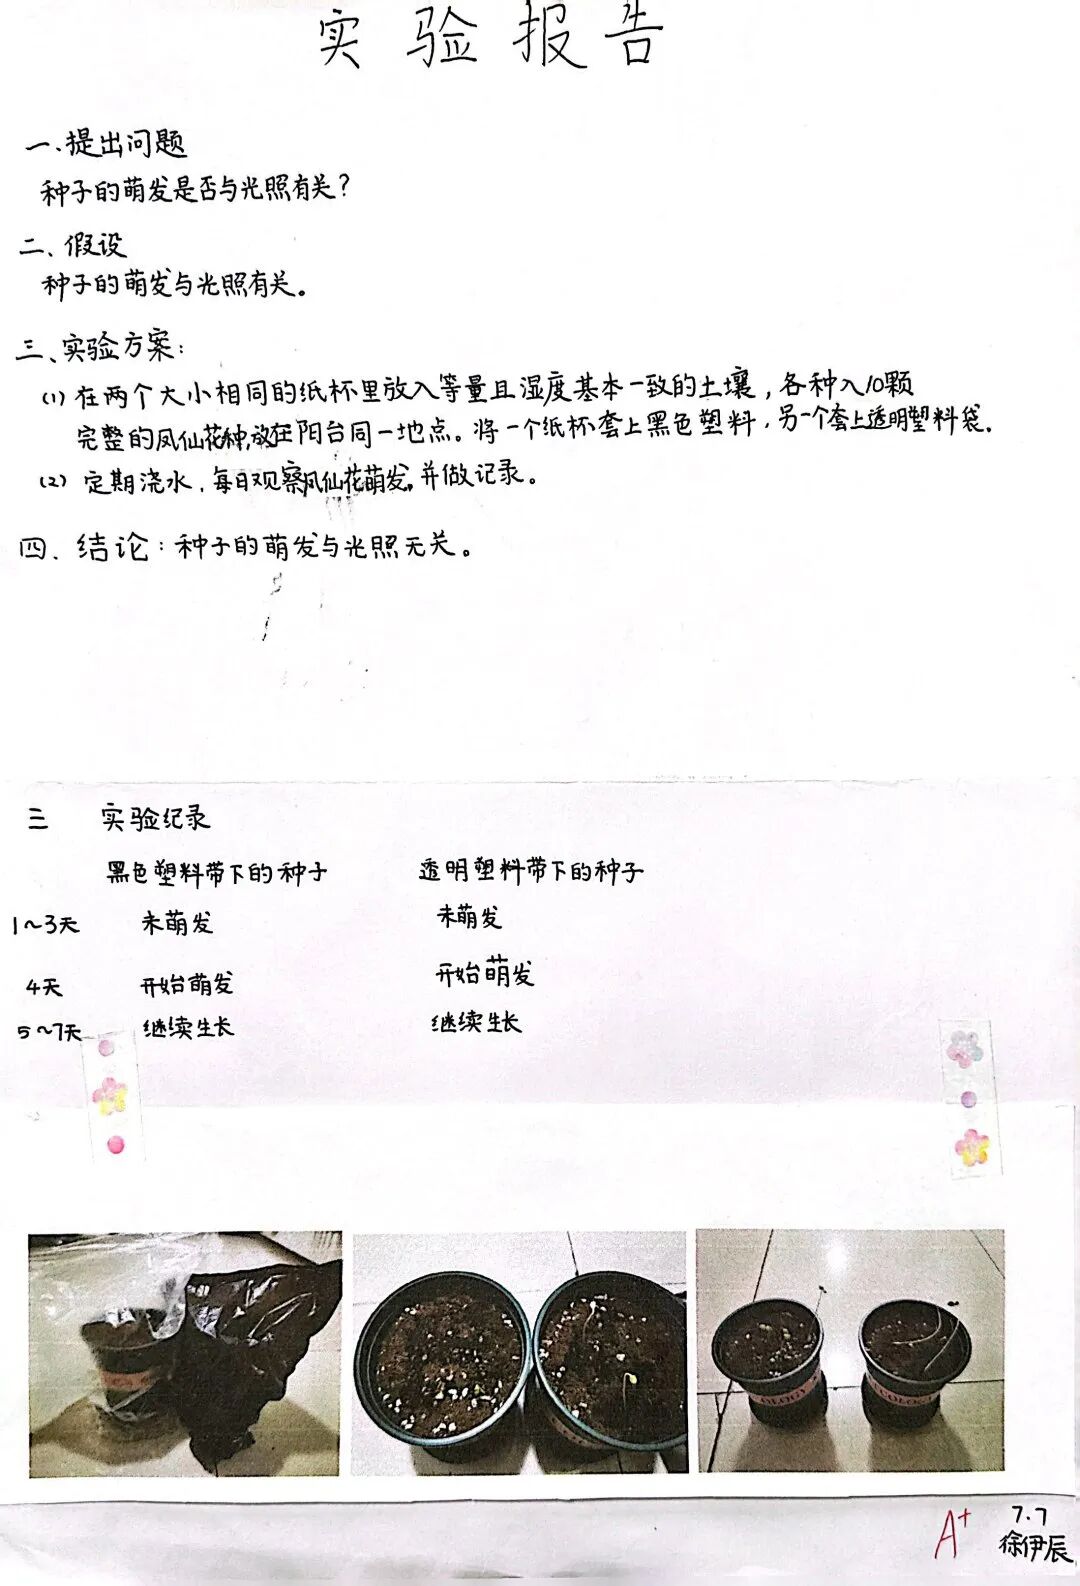 实验报告
一、提出问题
种子的萌发是否与光照有关？
二、假设
种子的萌发与光照有关。
三、实验方案：
(1) 在两个大小相同的纸杯里放入等量且湿度基本一致的土壤，各种入10颗
完整的凤仙花种，放在阳台同一地点。将一个纸杯套上黑色塑料，另一个套上透明塑料袋.
(2) 定期浇水，每日观察凤仙花萌发，并做记录。
四、结论：种子的萌发与光照无关。
三 实验纪录
黑色塑料带下的种子 透明塑料带下的种子
1~3天 未萌发 未萌发
4天 开始萌发 开始萌发
5~7天 继续生长 继续生长
A+ 7.7
徐伊辰